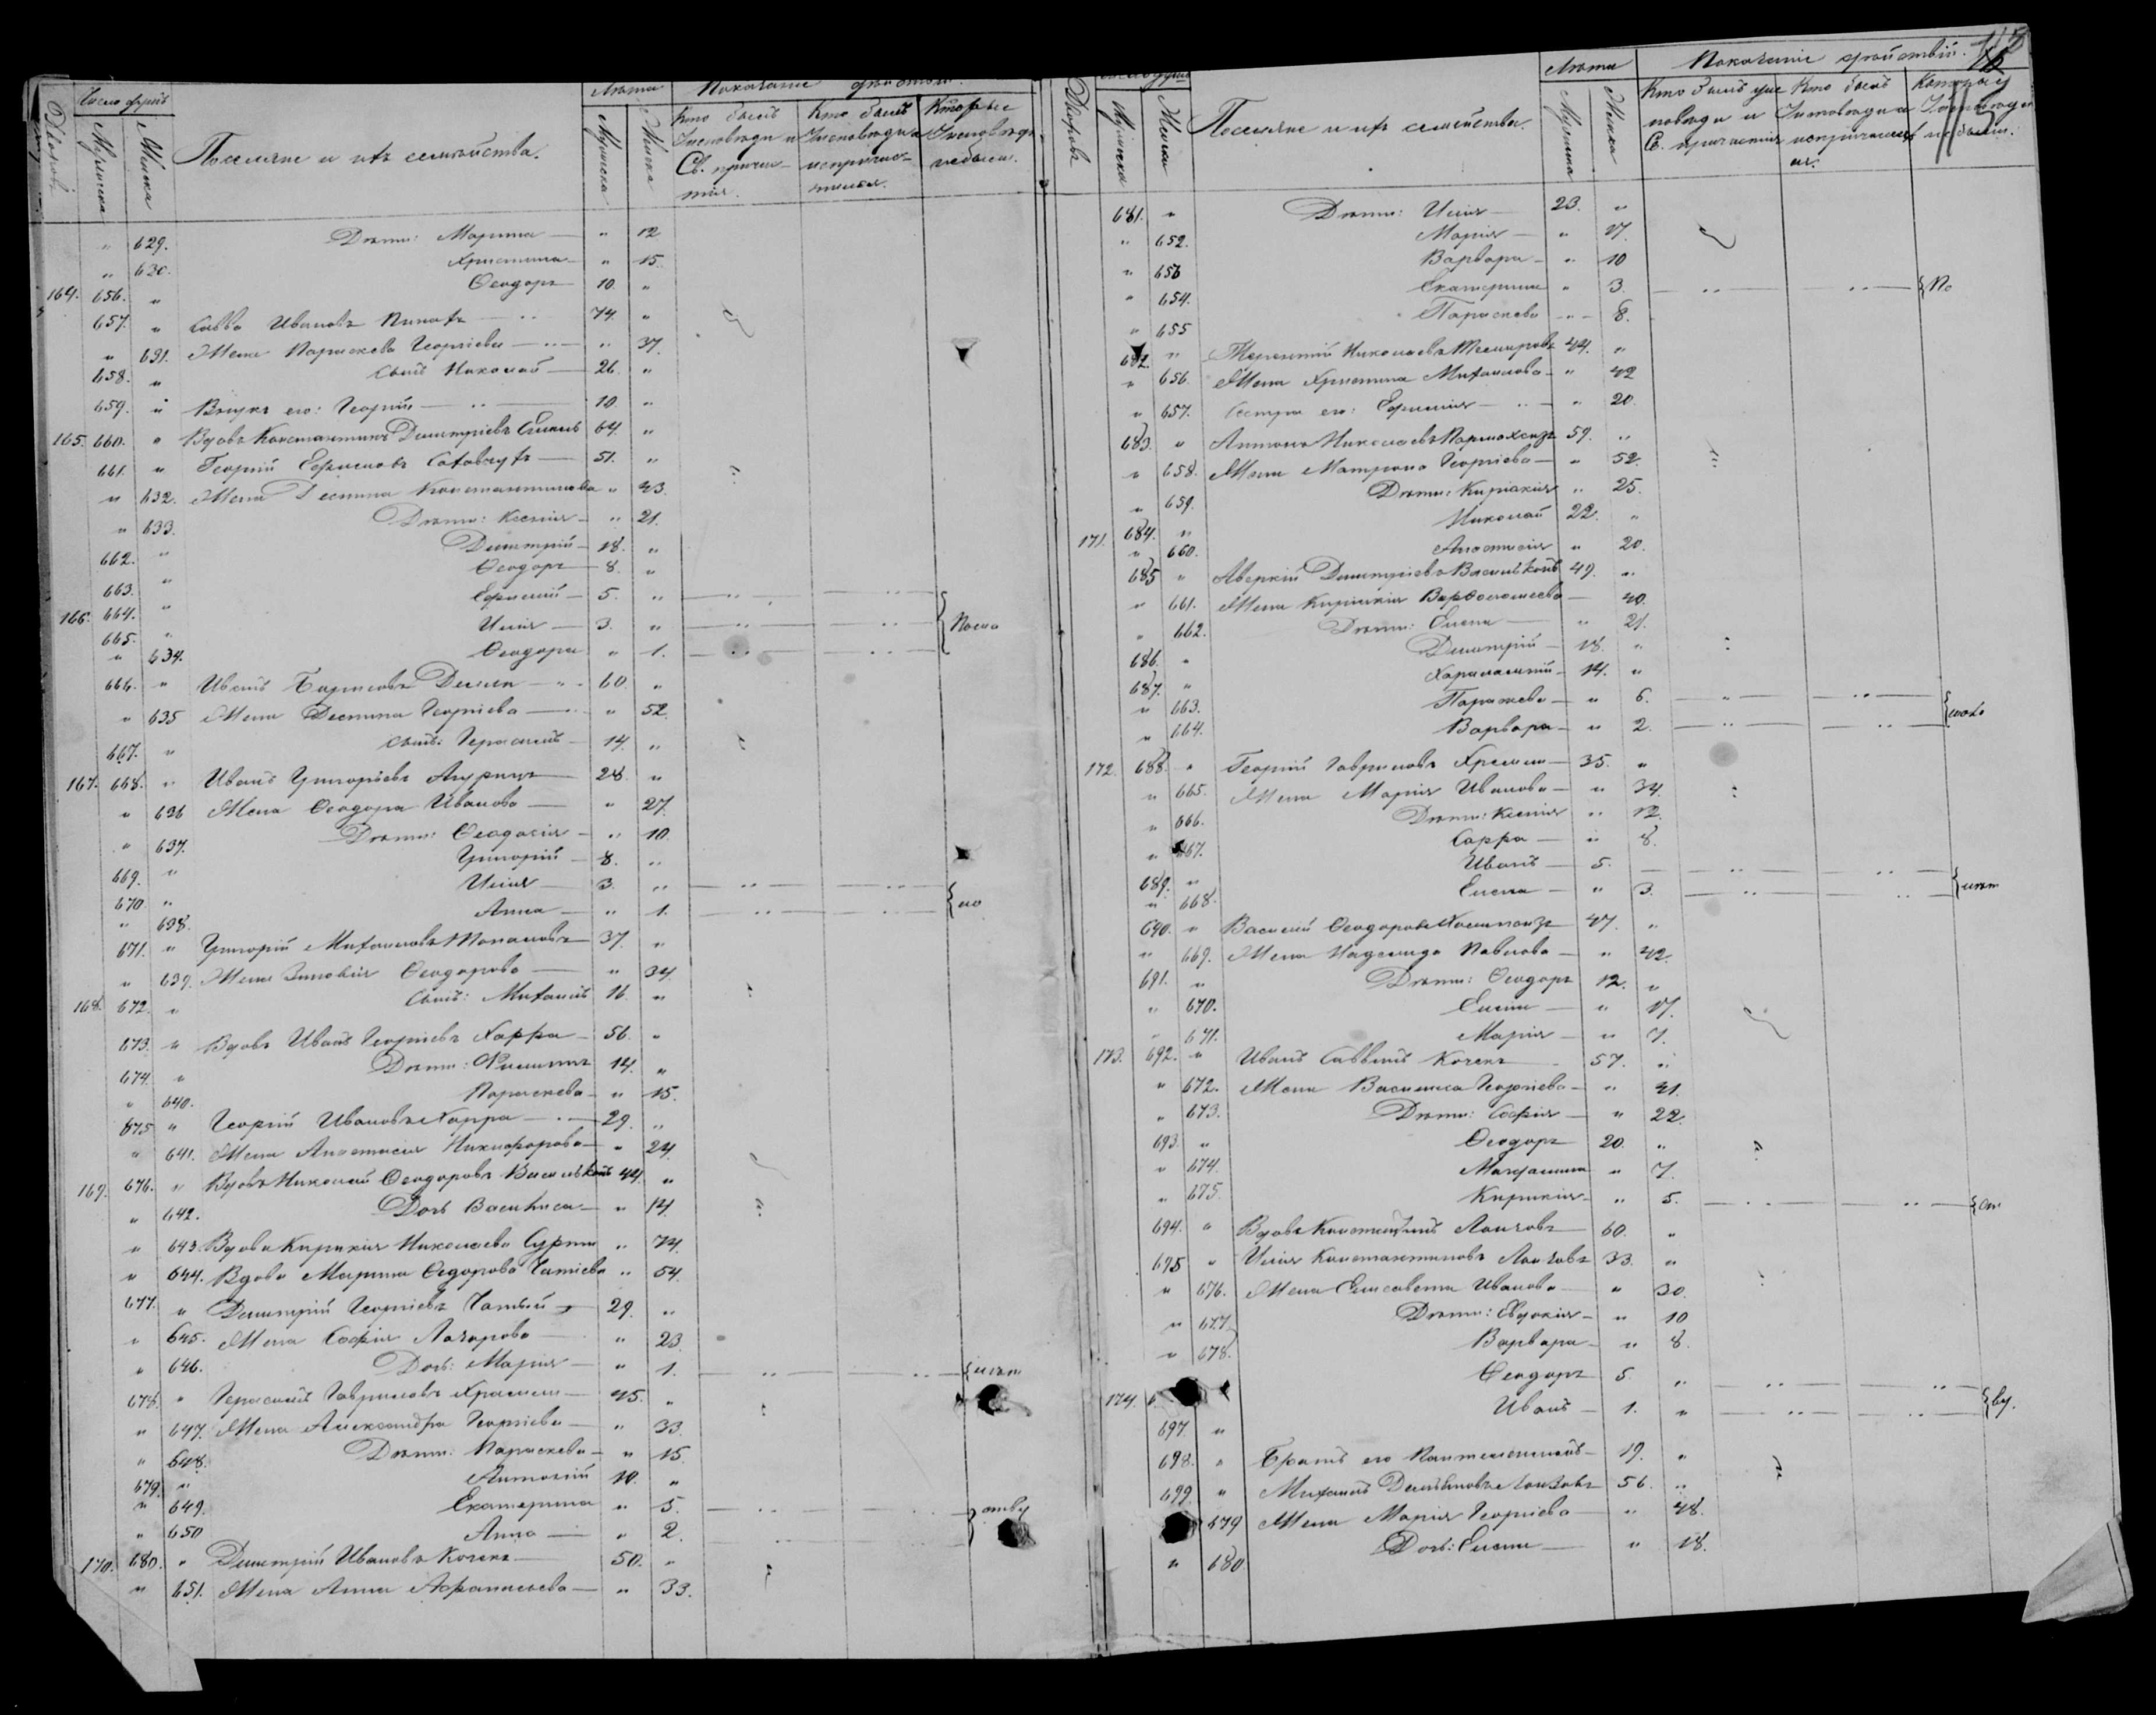 Число душъ
Лѣта
Показаніе дѣйствій.
Дворовъ
Мужеска
Женска
Поселяне и ихъ семейства.
Мужеска
Женска
Кто былъ у исповѣди и Св. причастія.
Кто былъ у исповѣди а не причастился.
Которые у исповѣди не были.
" 629. Дѣти: Марина — " 12
" 630. Христина — " 15.
164. 656. " Ѳеодоръ 10. "
657. " Савва Ивановъ 74. "
" 631. Жена Параскева Георгіева — " 37.
658. " Сынъ Николай — 26. "
659. " Внукъ его: Георгій — 10. "
165. 660. " Вдовъ Константинъ Димитріевъ 64. "
661. " Георгій Ефимовъ — 51. "
" 632. Жена Деспина Константинова " 43.
" 633. Дѣти: Ксенія — " 21.
662. " Димитрій — 18. "
663. " Ѳеодоръ — 8. "
166. 664. " Ефимій — 5. "
665. " Илія — 3. "
" 634. Ѳеодора " 1.
666. " Иванъ Борисовъ 60. "
" 635 Жена Деспина Георгіева — " 52.
667. " Сынъ: Герасимъ — 14. "
167. 668. " Иванъ Григорьевъ 28. "
" 636 Жена Ѳеодора Иванова — " 27.
" 637. Дѣти: Ѳеодосія — " 10.
669. " Григорій — 8. "
670. " Илія — 3. "
" 638. Анна — " 1.
671. " Григорій Михаиловъ Топаловъ 37. "
" 639. Жена Зиновія Ѳеодорова — " 34.
168. 672. " Сынъ: Михаилъ 16. "
673. " Вдовъ Иванъ Георгіевъ Харра — 56. "
674. " Дѣти: Филиппъ 14. "
" 640. Параскева — " 15.
675 " Георгій Ивановъ Харра — 29. "
" 641. Жена Анастасія Никифорова — " 24.
169. 676. " Вдовъ Николай Ѳеодоровъ 44. "
" 642. Дочь Василиса — " 14.
" 643. Вдова Кирикія Николаева " 74.
" 644. Вдова Марина Ѳедорова " 54.
677. " Димитрій Георгіевъ 29. "
" 645. Жена Софія Лазарева — " 23.
" 646. Дочь: Марія — " 1.
678. " Герасимъ Гавриловъ 45. "
" 647. Жена Александра Георгіева — " 33.
" 648. Дѣти: Параскева — " 15.
679. " Антоній 10. "
" 649. Екатерина " 5.
" 650 Анна — " 2.
170. 680. " Димитрій Ивановъ Коченъ — 50. "
" 651. Жена Анна Афанасьева — " 33.
Лѣта
Показаніе дѣйствій.
Дворовъ
Мужеска
Женска
Поселяне и ихъ семейства.
Мужеска
Женска
Кто былъ у исповѣди и Св. причастія
Кто былъ у исповѣди а не причастился.
Которые у исповѣди не были.
681. " Дѣти: Илія — 23. "
" 652. Марія — " 17.
" 653 Варвара — " 10
" 654. Екатерина " 3.
" 655 Параскева — " 8.
682. " Терентій Николаевъ 44. "
" 656. Жена Христина Михаилова — " 42
" 657. Сестра его: Ефимія — " 20.
683. " Антонъ Николаевъ 59. "
" 658. Жена Матрона Георгіева — " 52.
" 659. Дѣти: Киріакія " 25.
171. 684. " Николай 22. "
" 660. Анастасія " 20.
685 " Аверкій Димитріевъ 49. "
" 661. Жена Киріакія Варѳоломеева — 40.
" 662. Дѣти: Елена — " 21.
686. " Димитрій — 18. "
687. " Харлампій — 14. "
" 663. Параскева — " 6.
" 664. Варвара — " 2.
172. 688. " Георгій Гавриловъ — 35. "
" 665. Жена Марія Иванова — " 34.
" 666. Дѣти: Ксенія " 12.
" 667. Сарра — " 8.
689. " Иванъ — 5.
" 668. Елена — " 3.
690. " Василій Ѳеодоровъ 47. "
" 669. Жена Надежда Павлова — " 42.
691. " Дѣти: Ѳеодоръ 12. "
" 670. Елена — " 17.
" 671. Марія — " 7.
173. 692. " Иванъ Саввинъ Коченъ 57. "
" 672. Жена Василиса Георгіева — " 41.
" 673. Дѣти: Софія — " 22.
693. " Ѳеодоръ 20. "
" 674. Магдалина " 7.
" 675. Кирикія — " 5.
694. " Вдовъ Константинъ 60. "
695 " Илія Константиновъ 33. "
" 676. Жена Елисавета Иванова — " 30.
" 677. Дѣти: Евдокія — " 10
" 678. Варвара — " 8.
174. 6 Ѳеодоръ 5. "
697. " Иванъ — 1. "
698. " Братъ его Пантелеимонъ — 19. "
699. " Михаилъ 56. "
679 Жена Марія Георгіева — " 48.
" 680. Дочь: Елена — " 18.